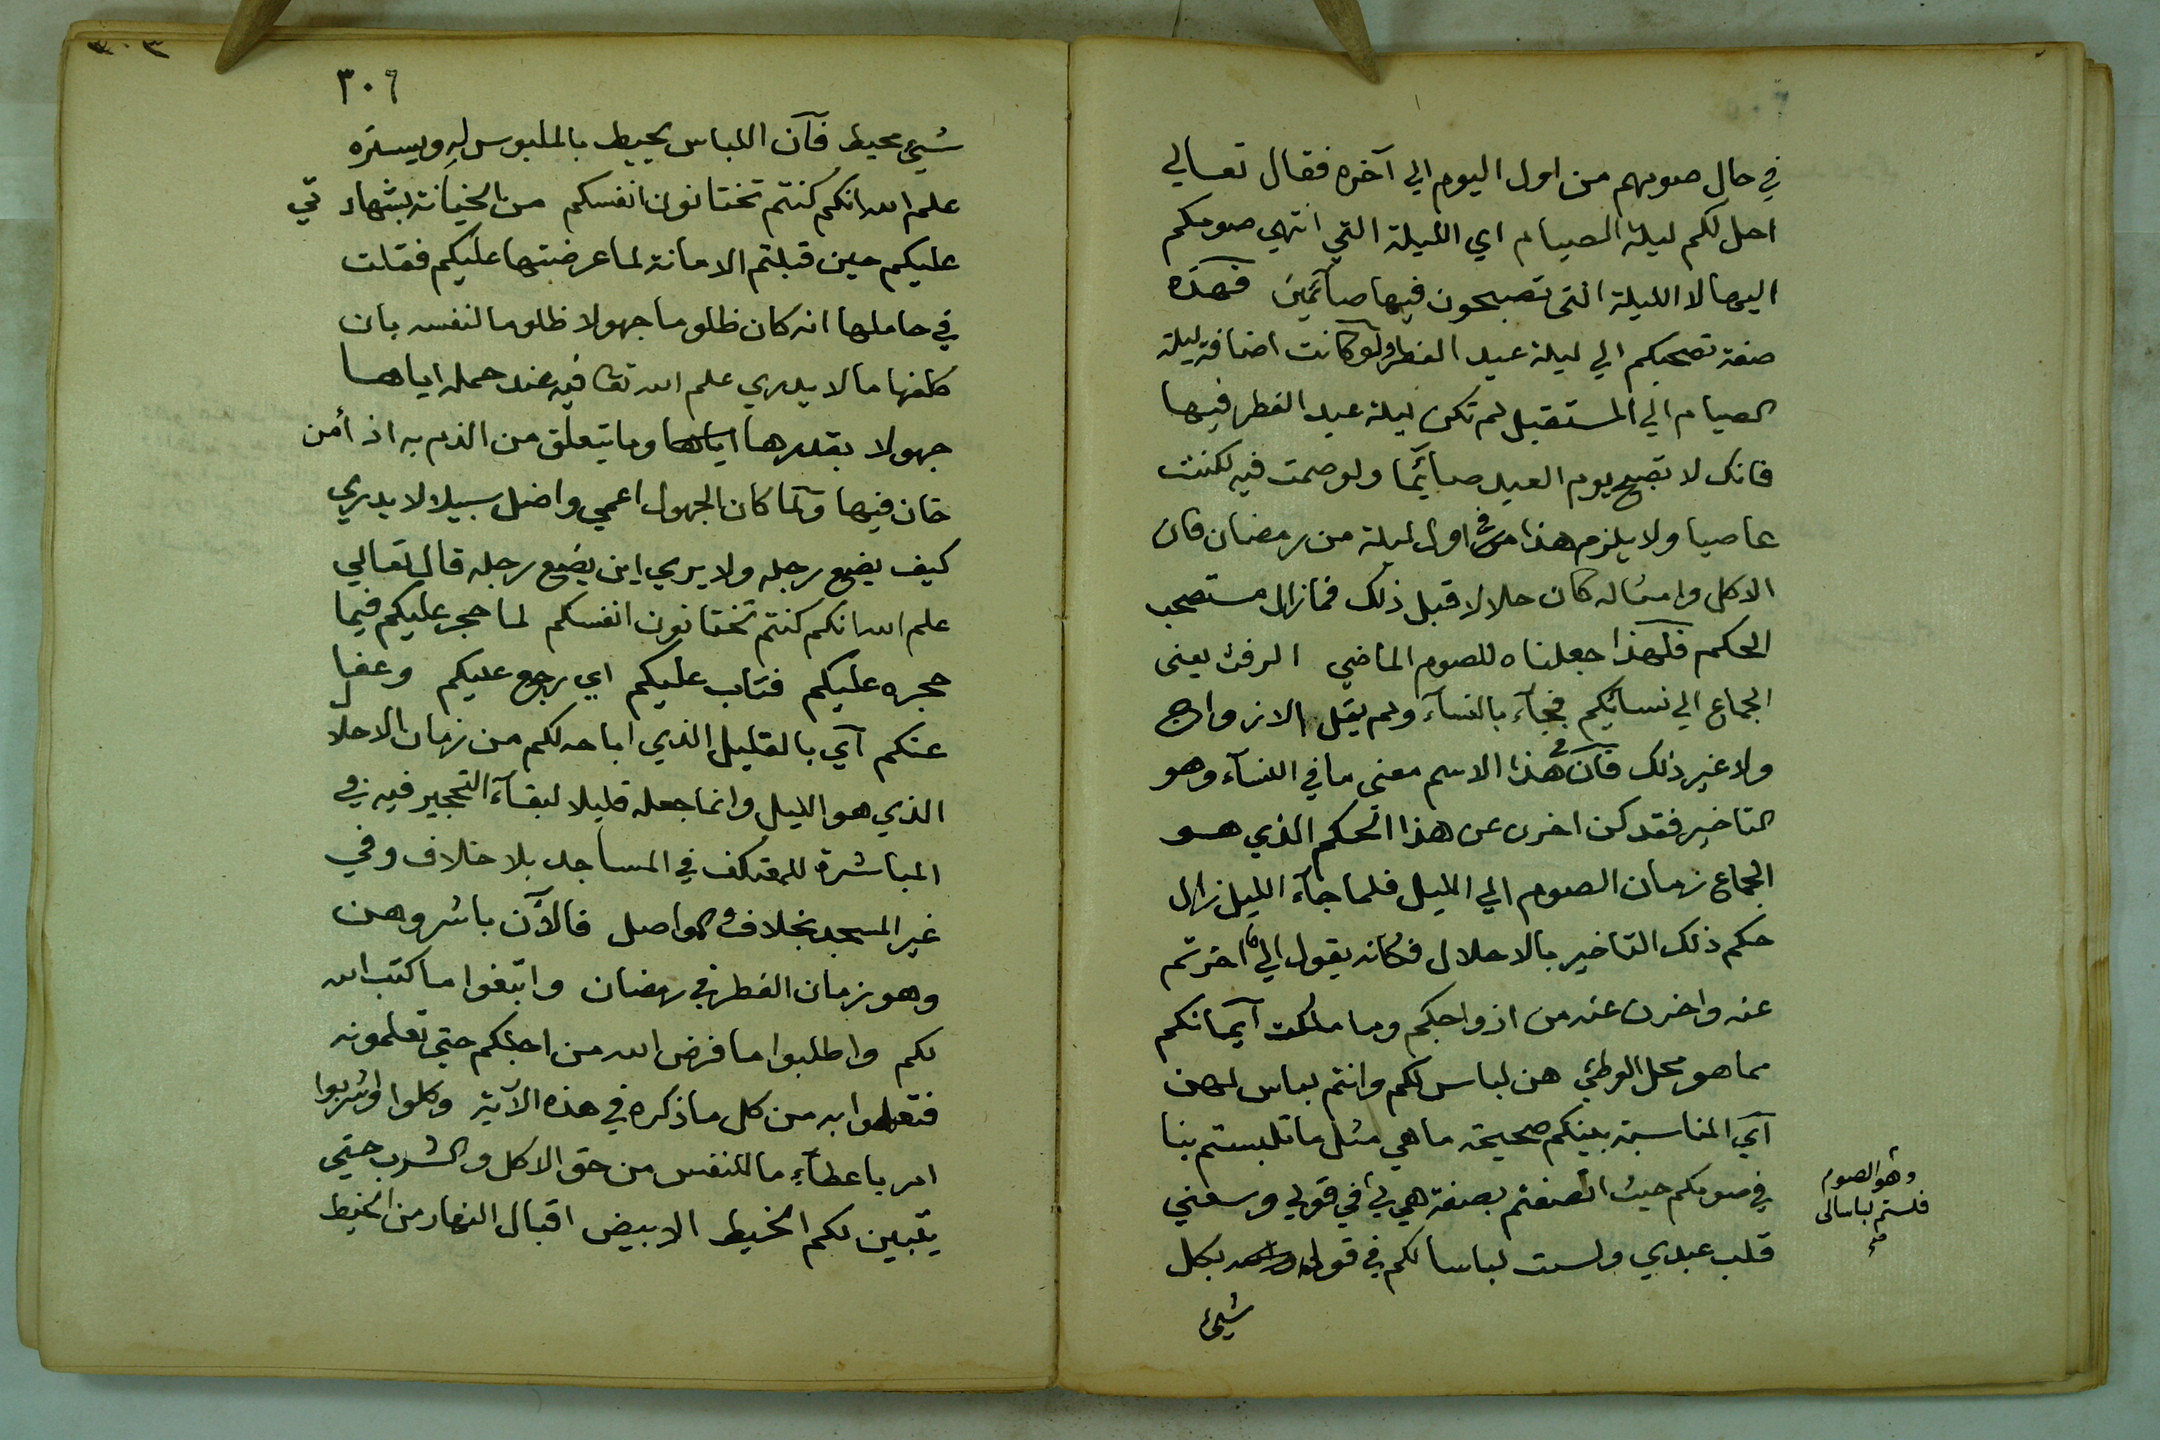 في حال صومهم من اول اليوم الي آخره فقال تعالي
احل لكم ليلة الصيام اي الليلة التي انتهي صومكم
اليها لا الليلة التي تصبحون فيها صآئمين فهذه
صفة تصحبكم الي ليلة عيد الفطر ولو كانت اضافة ليلة
الصيام الي المستقبل لم تكن ليلة عيد الفطر فيها
فانك لا تصبح يوم العيد صآئما ولو صمت فيه لكنت
عاصيا ولا يلزم هذا في اول ليلة من رمضان فان
الاكل وامثاله كان حلالا قبل ذلك فمازال مستصحب
الحكم فلهذا جعلناه للصوم الماضي الرفث يعني
الجماع الي نسائكم فجآء بالنسآء ولم يقل الازواج
ولا غير ذلك فان في هذا الاسم معني ما في النسآء وهو
التاخير فقد كن اخرن عن هذا الحكم الذي هو
الجماع زمان الصوم الي الليل فلما جآء الليل زال
حكم ذلك التاخير بالاحلال فكانه يقول الي ما اخرتم
عنه واخرن عنه من ازواجكم وما ملكت آيمانكم
مما هو محل الوطئ هن لباس لكم وانتم لباس لهن
آي المناسبة بينكم صحيحة ما هي مثل ما تلبستم بنا
في صومكم حيث اتصفتم بصفة هي لي في قولي وسعني
قلب عبدي ولست لباسا لكم في قولي بكل
شيئ
وهو الصوم
فلستم لباسا لي
صح
٣٠٣
٣٠٦
شيئ محيط فآن اللباس يحيط بالملبوس له ويستره
علم الله انكم كنتم تختانون انفسكم من الخيانة بشهادتي
عليكم حين قبلتم الامانة لما عرضتها عليكم فقلت
في حاملها انه كان ظلوما جهولا ظلوما لنفسه بان
كلفها ما لا يدري علم الله تعا فيه عند حمله اياها
جهولا بقدرها وما يتعلق من الذم به اذ أمن
خان فيها ولما كان الجهول اعمي واضل سبيلا لا يدري
كيف يضع رجله ولا يري اين يضع رجله قال تعالي
علم الله انكم كنتم تختانون انفسكم لما حجر عليكم فيما
حجره عليكم فتاب عليكم اي رجع عليكم وعفا
عنكم آي بالقليل الذي اباحه لكم من زمان الاحلال
الذي هو الليل وانما جعله قليلا لبقآء التحجير فيه في
المباشرة للمعتكف في المساجد بلا خلاف وفي
غير المسجد بخلاف والمواصل فالآن باشروهن
وهو زمان الفطر في رمضان وابتغوا ما كتب الله
لكم واطلبوا ما فرض الله من اجلكم حتي تعلمونه
فتعملوا به من كل ما ذكره في هذه الآية وكلوا واشربوا
امر باعطآء ما للنفس من حق الاكل والشرب حتي
يتبين لكم الخيط الابيض اقبال النهار من الخيط